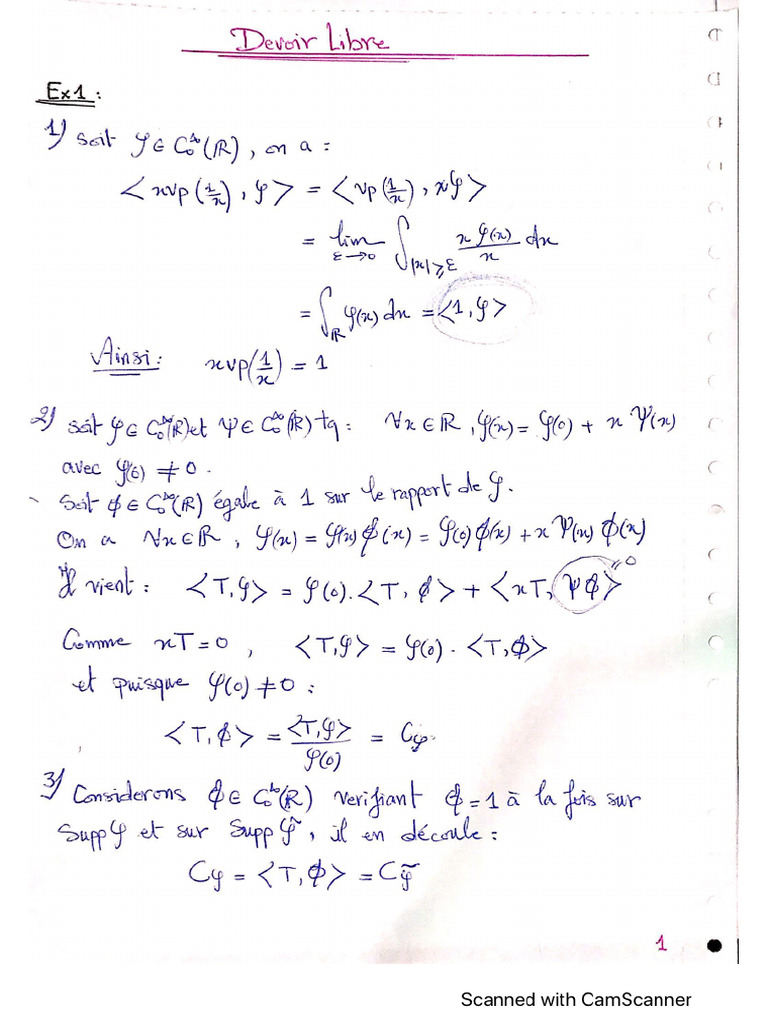 Devoir Libre
Ex1 :
1) Soit φ ∈ C₀^∞(ℝ), on a :
< x vp(1/x), φ > = < vp(1/x), xφ >
= lim_{ε→0} ∫_{|x|≥ε} xφ(x)/x dx
= ∫_ℝ φ(x) dx = <1, φ>
Ainsi : x vp(1/x) = 1
2) Soit φ ∈ C₀^∞(ℝ) et Ψ ∈ C₀^∞(ℝ) tq : ∀x ∈ ℝ, φ(x) = φ(0) + x Ψ(x)
avec φ(0) ≠ 0.
Soit ϕ ∈ C₀^∞(ℝ) égale à 1 sur le rapport de φ.
On a ∀x ∈ ℝ, φ(x) = φ(x) ϕ(x) = φ(0) ϕ(x) + x Ψ(x) ϕ(x)
Il vient : <T, φ> = φ(0). <T, ϕ> + <xT, Ψϕ> = 0
Comme xT = 0, <T, φ> = φ(0) . <T, ϕ>
et puisque φ(0) ≠ 0 :
<T, ϕ> = <T, φ>/φ(0) = C_φ.
3) Considerons ϕ ∈ C₀^∞(ℝ) verifiant ϕ = 1 à la fois sur
Supp φ et sur Supp φ̃, il en découle :
C_φ = <T, ϕ> = C_φ̃
1
Scanned with CamScanner